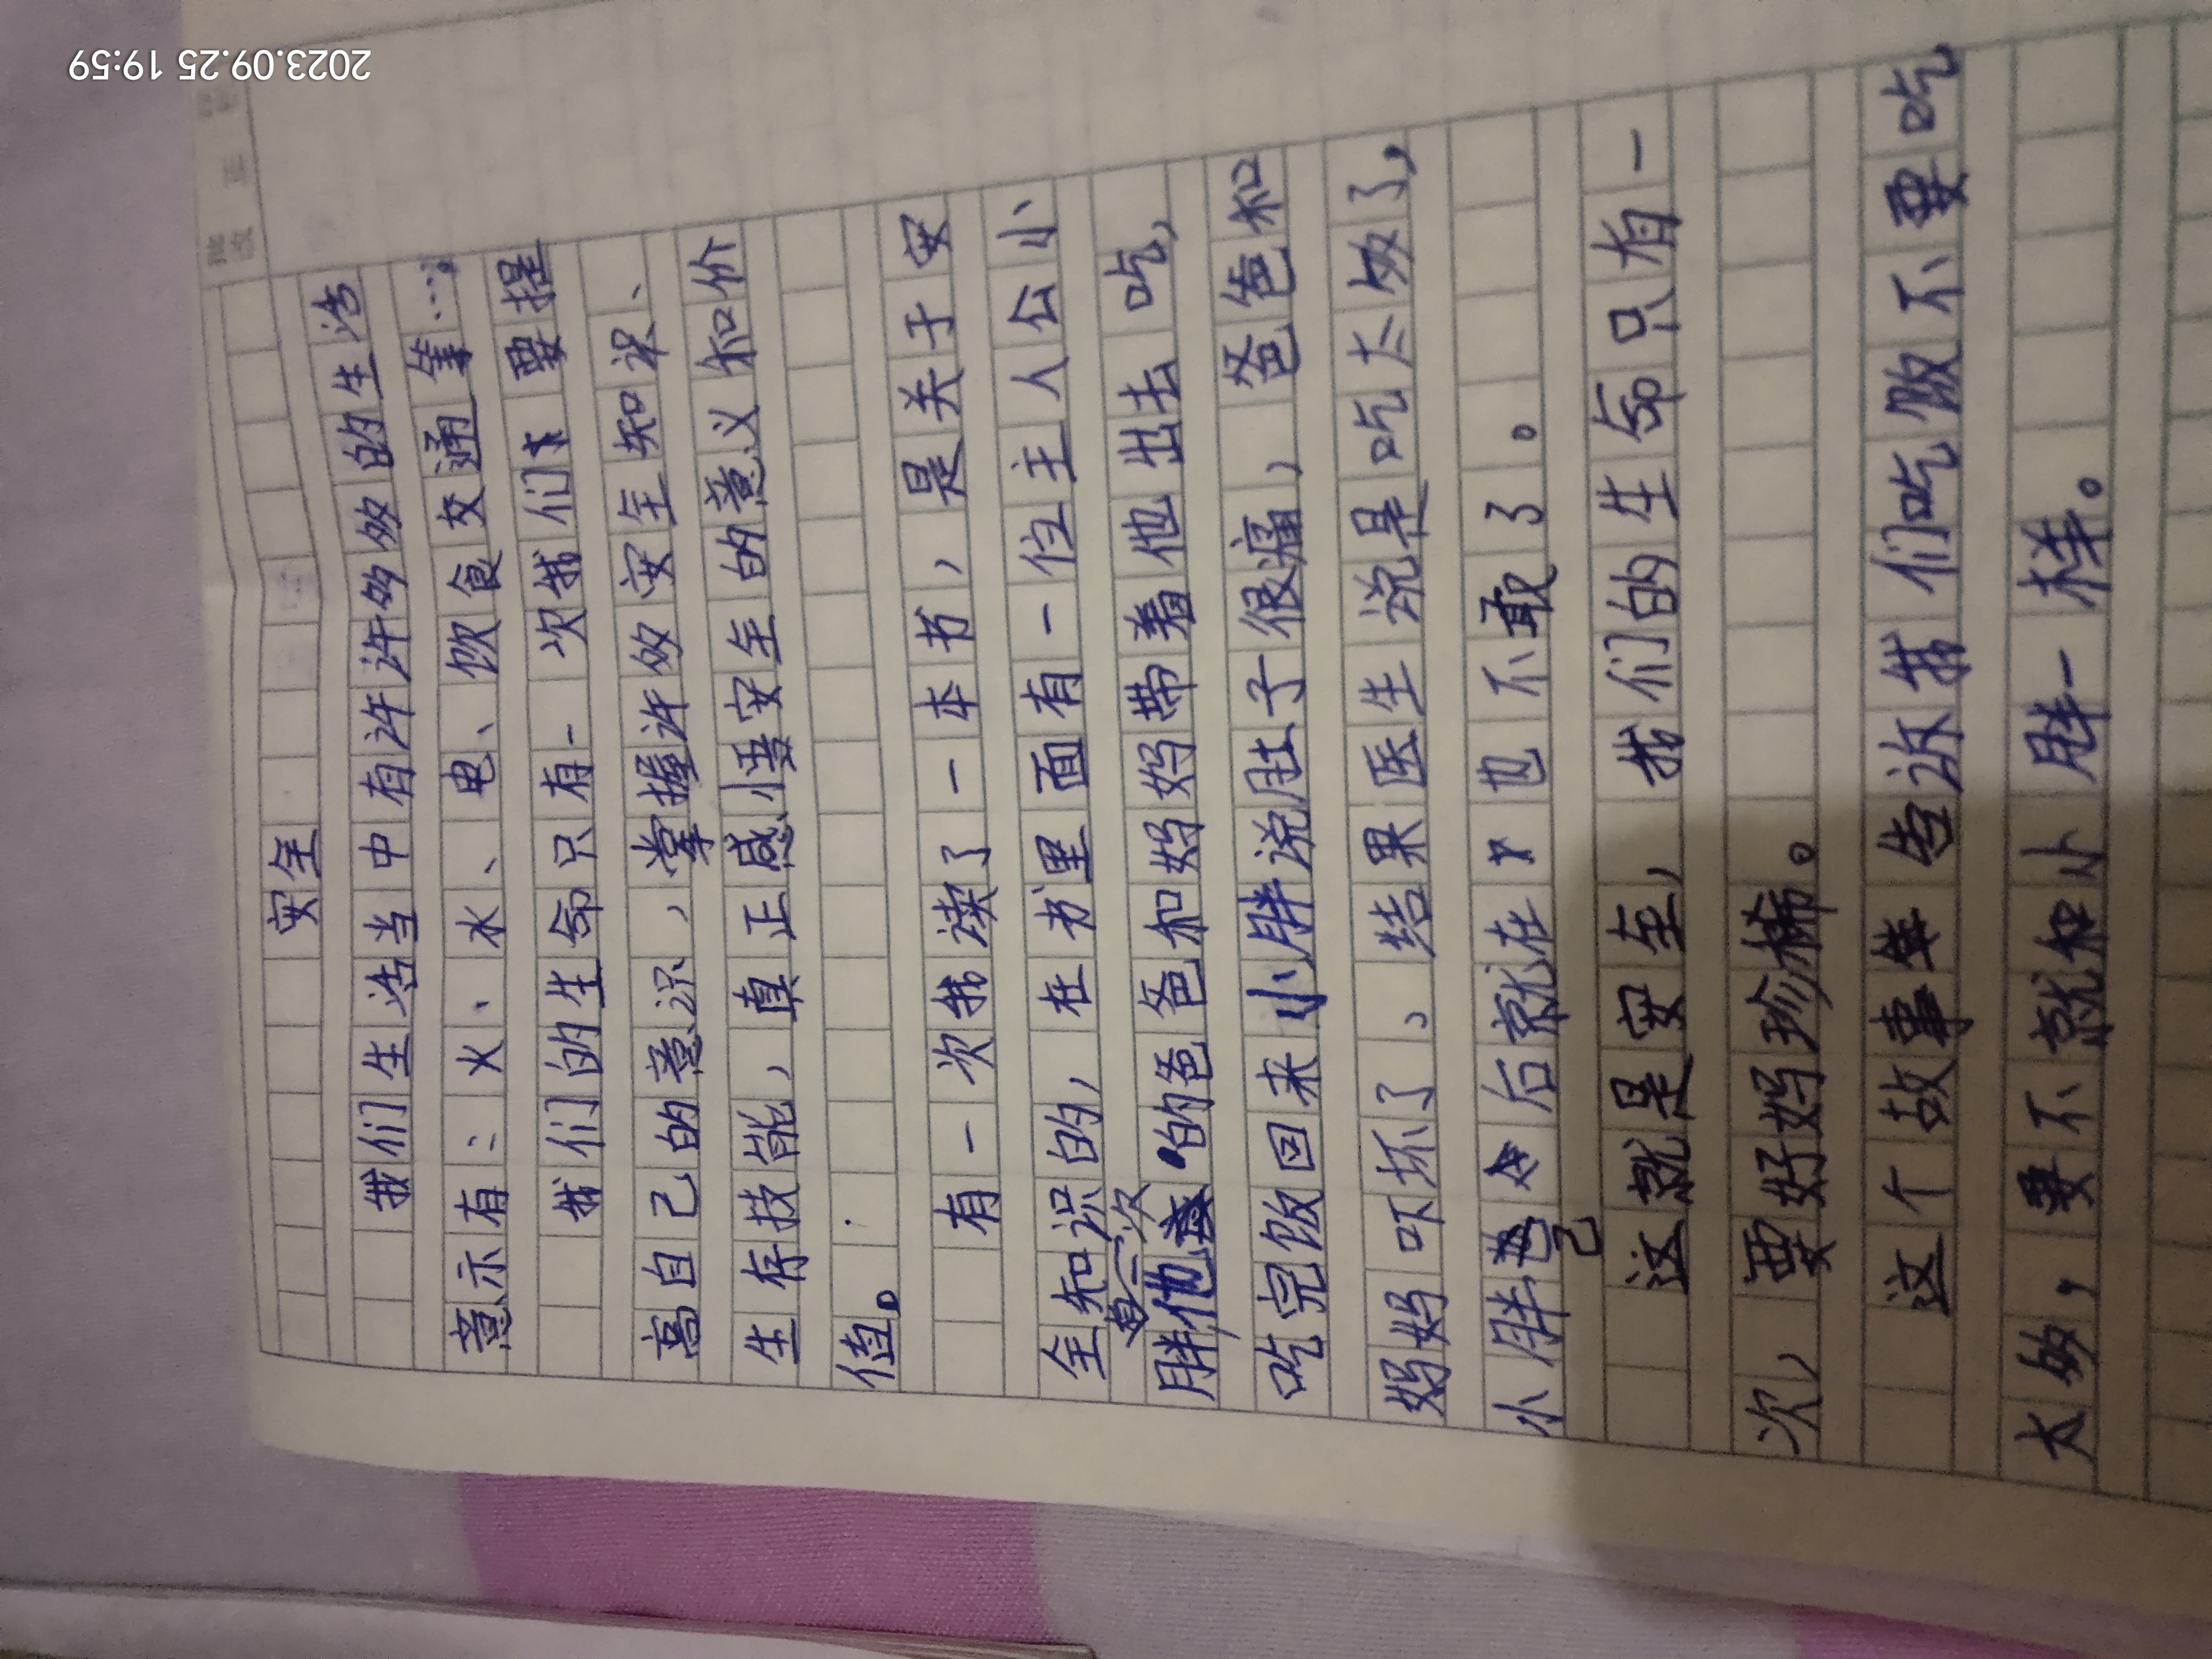 安全
我们生活当中有许许多多的生活
意示有:火、水、电、饮食交通等…
我们的生命只有一次我们要提
高自己的意识,掌握许多安全知识、
生存技能,真正感悟安全的意义和价
值。
有一次我读了一本书,是关于安
全知识的,在书里面有一位主人公小
胖,有一次他的爸爸和妈妈带着他出去吃,
吃完饭回来小胖说肚子很痛,爸爸和
妈妈吓坏了、结果医生说是吃太多了,
小胖后就在也不敢了。
这就是安全,我们的生命只有一
次,要好好珍惜。
这个故事告诉我们吃饭不要吃
太多,要不就和小胖一样。
2023.09.25 19:59